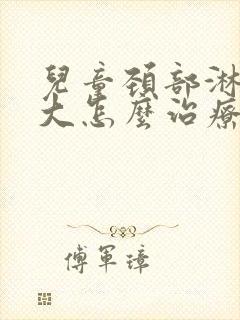 兒童頚部淋
大怎麼治療
傅軍璋